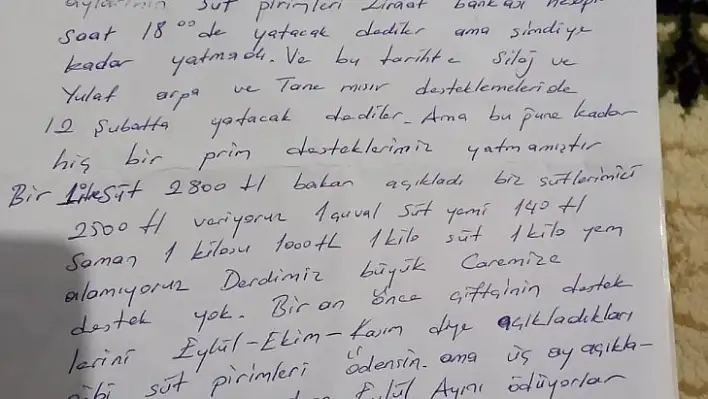 aylarının süt pirimleri Ziraat bankası
Saat 18⁰⁰ de yatacak dediler ama şimdiye
kadar yatmadı. Ve bu tarihte Silaj ve
Yulaf arpa ve Tane mısır desteklemeleride
12 Şubatta yatacak dediler. Ama bu güne kadar
hiç bir prim desteklerimiz yatmamıştır
Bir süt 2800 tl bakan açıkladı biz sütlerimizi
2500 tl veriyoruz 1 çuval süt yemi 140 tl
Saman 1 kilosu 1000 tl 1 kilo süt 1 kilo yem
alamıyoruz Derdimiz büyük Caremize
destek yok. Bir an önce çiftçinin destek
lerini Eylül-Ekim-Kasım diye açıkladıkları
gibi süt pirimleri ödensin. ama üç ay açıkla-
Eylül Ayını ödüyorlar